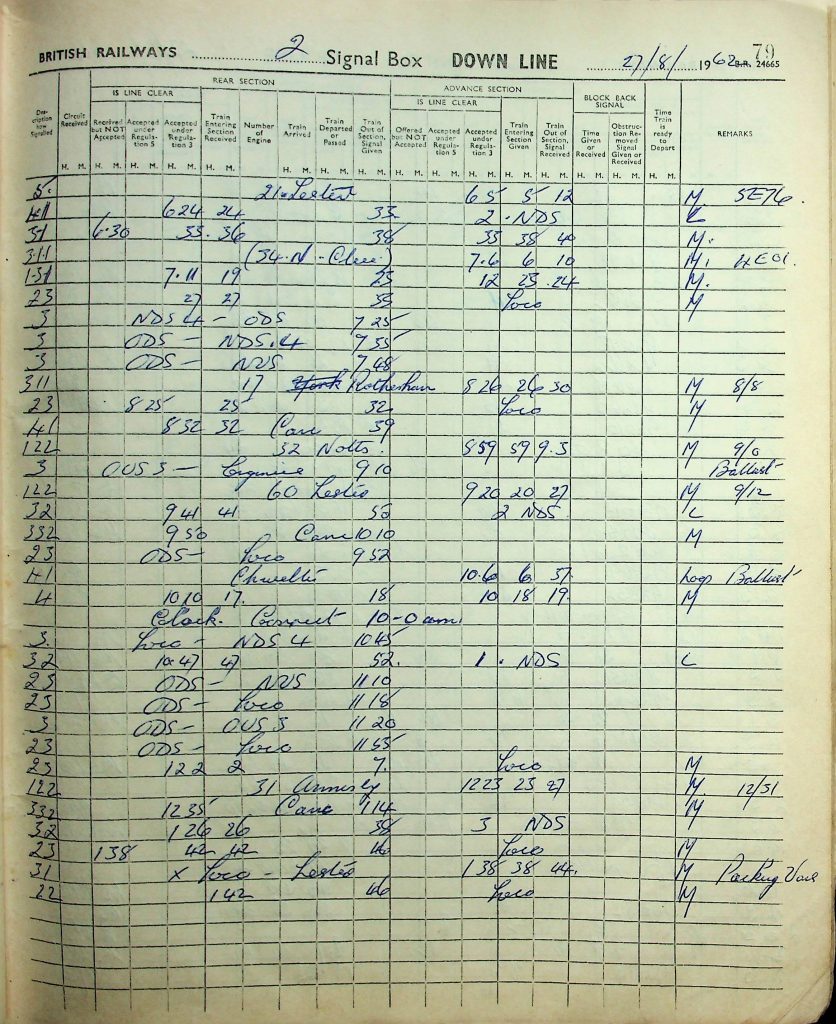 79
BRITISH RAILWAYS 2 Signal Box DOWN LINE 27/8/ 1962 B.R. 24665
REAR SECTION ADVANCE SECTION
IS LINE CLEAR IS LINE CLEAR BLOCK BACK SIGNAL
Description how Signalled Circuit Received Received but NOT Accepted Accepted under Regulation 5 Accepted under Regulation 3 Train Entering Section Received Number of Engine Train Arrived Train Departed or Passed Train Out of Section, Signal Given Offered but NOT Accepted Accepted under Regulation 5 Accepted under Regulation 3 Train Entering Section Given Train Out of Section, Signal Received Time Given or Received Obstruction Removed Signal Given or Received Time Train is ready to Depart REMARKS
H. M. H. M. H. M. H. M. H. M. H. M. H. M. H. M. H. M. H. M. H. M. H. M. H. M. H. M. H. M. H. M.
5. 21 6 5 5 12 M 5E76
41 6 24 24 33 2 . NDS L
31 6.30 33. 36 38 33 38 40 M.
311 (34.N - ) 7.6 6 10 M. 4E01.
131 7.11 19 23 12 23 .24 M.
23 27 27 33 Loco M
3 NDS 4 - ODS 7 25
3 ODS - NDS.4 7 35
3 ODS - NUS 7 48
311 17 York Rotherham 8 26 26 30 M 8/8
23 8 25 25 32 Loco M
41 8 32 32 39
122 32 Notts. 8 59 59 9.3 M 9/0
3 OUS 3 - Engine 9 10 Ballast
122 60 9 20 20 27 M 9/12
32 9 41 41 53 2 NDS L
332 9 50 10 10 M
23 ODS - Loco 9 52
41 10.6 6 57 Loop Ballast
4 10 10 17. 18 10 18 19. M
Clock. Correct 10-0 am.
3. Loco - NDS 4 10 45
32 10.47 47 52. 1 . NDS L
23 ODS - NUS 11 10
23 ODS - Loco 11 18
3 ODS - OUS.3 11 20
23 ODS - Loco 11 55
23 12 2 2 7. Loco M
122 31 Annesley 12 23 23 27 M. 12/31
332 12 35 1 14 M
32 1 26 26 38 3 NDS
23 1 38 42 42 46 Loco M
31 x Loco - 1 38 38 44. M Parking Vans
22 1 42 46 Loco M